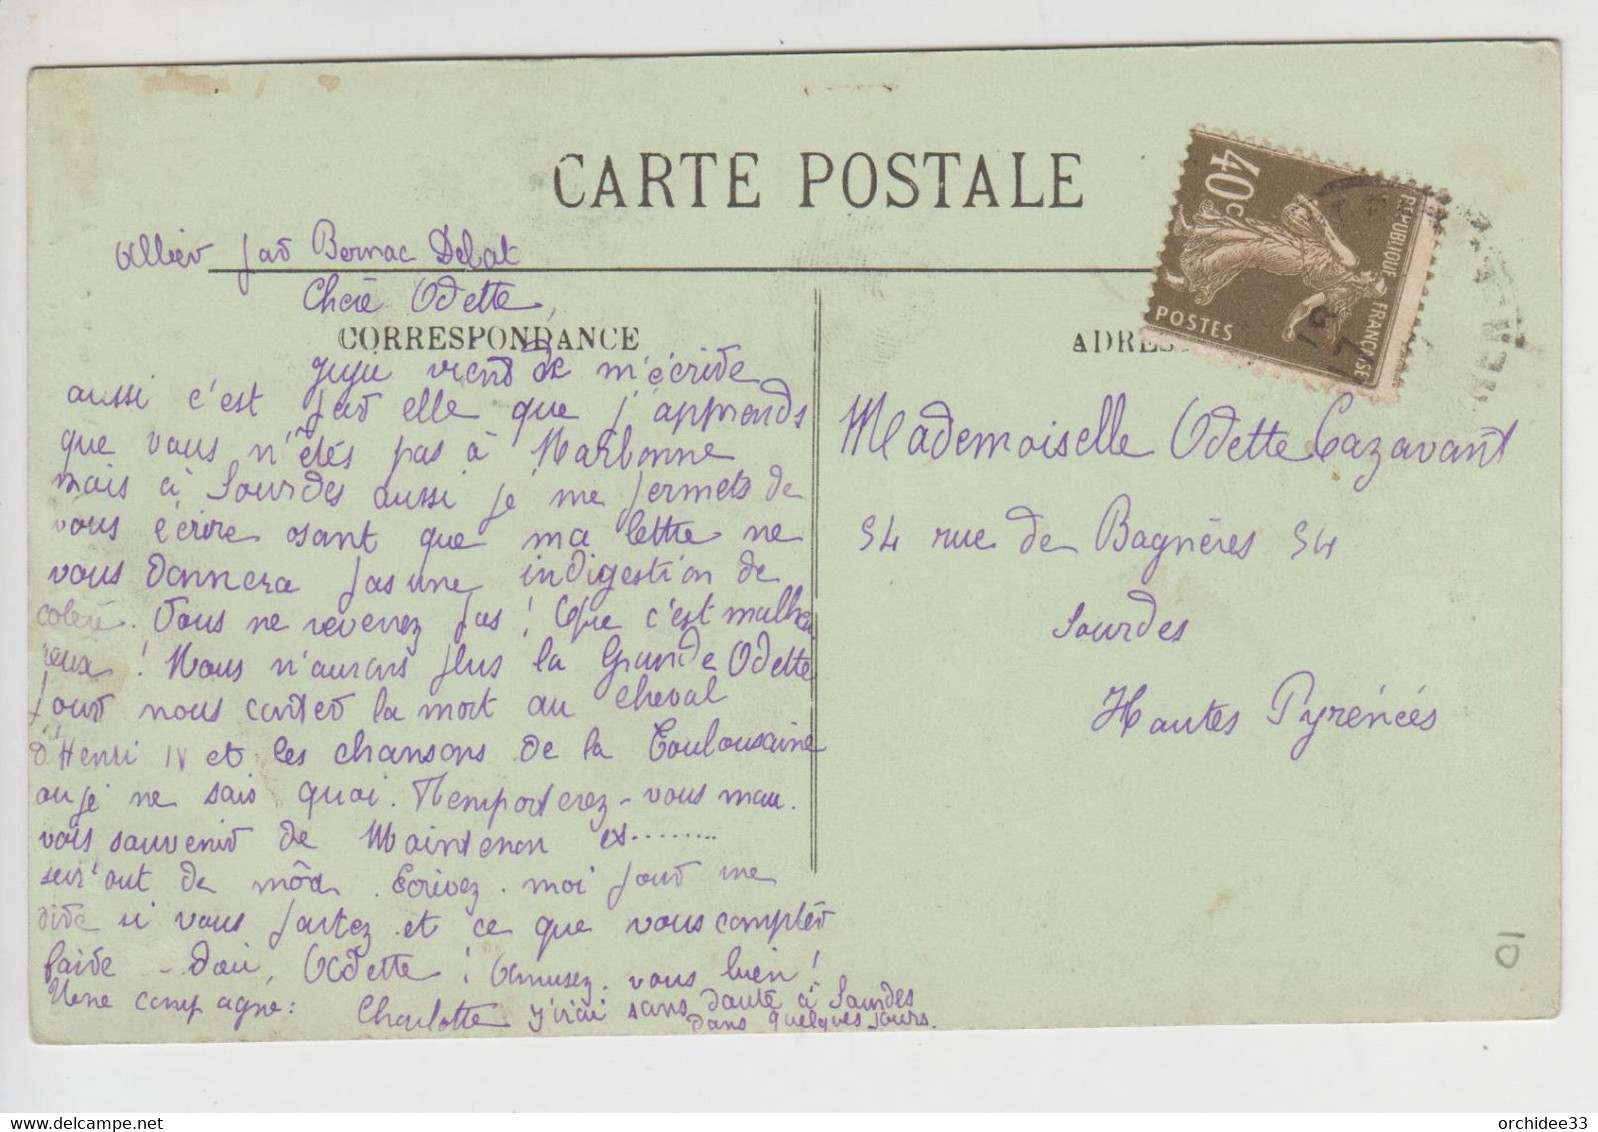 CARTE POSTALE
Allier par Bernac Debat
Chère Odette,
CORRESPONDANCE
Juju vient de m'écrire
aussi c'est par elle que j'apprends
que vous n'êtes pas à Narbonne
mais à Lourdes aussi je me permets de
vous écrire osant que ma lettre ne
vous donnera pas une indigestion de
colère. Vous ne revenez pas ! Que c'est malheu
reux ! Nous n'aurons plus la Grande Odette
pour nous conter la mort au cheval
d'Henri IV et les chansons de la Toulousaine
ou je ne sais quoi. N'emporterez-vous mau.
vais souvenir de Maintenon et........
surtout de moi. Ecrivez-moi pour me
dire si vous partez et ce que vous compter
faire Odette ! Amusez-vous bien !
Une compagne : Charlotte j'irai sans doute à Lourdes
dans quelques jours.
40c
REPUBLIQUE FRANÇAISE
POSTES
ADRES
Mademoiselle Odette Cazavant
54 rue de Bagnères 54
Lourdes
Hautes Pyrénées
10
orchidee33